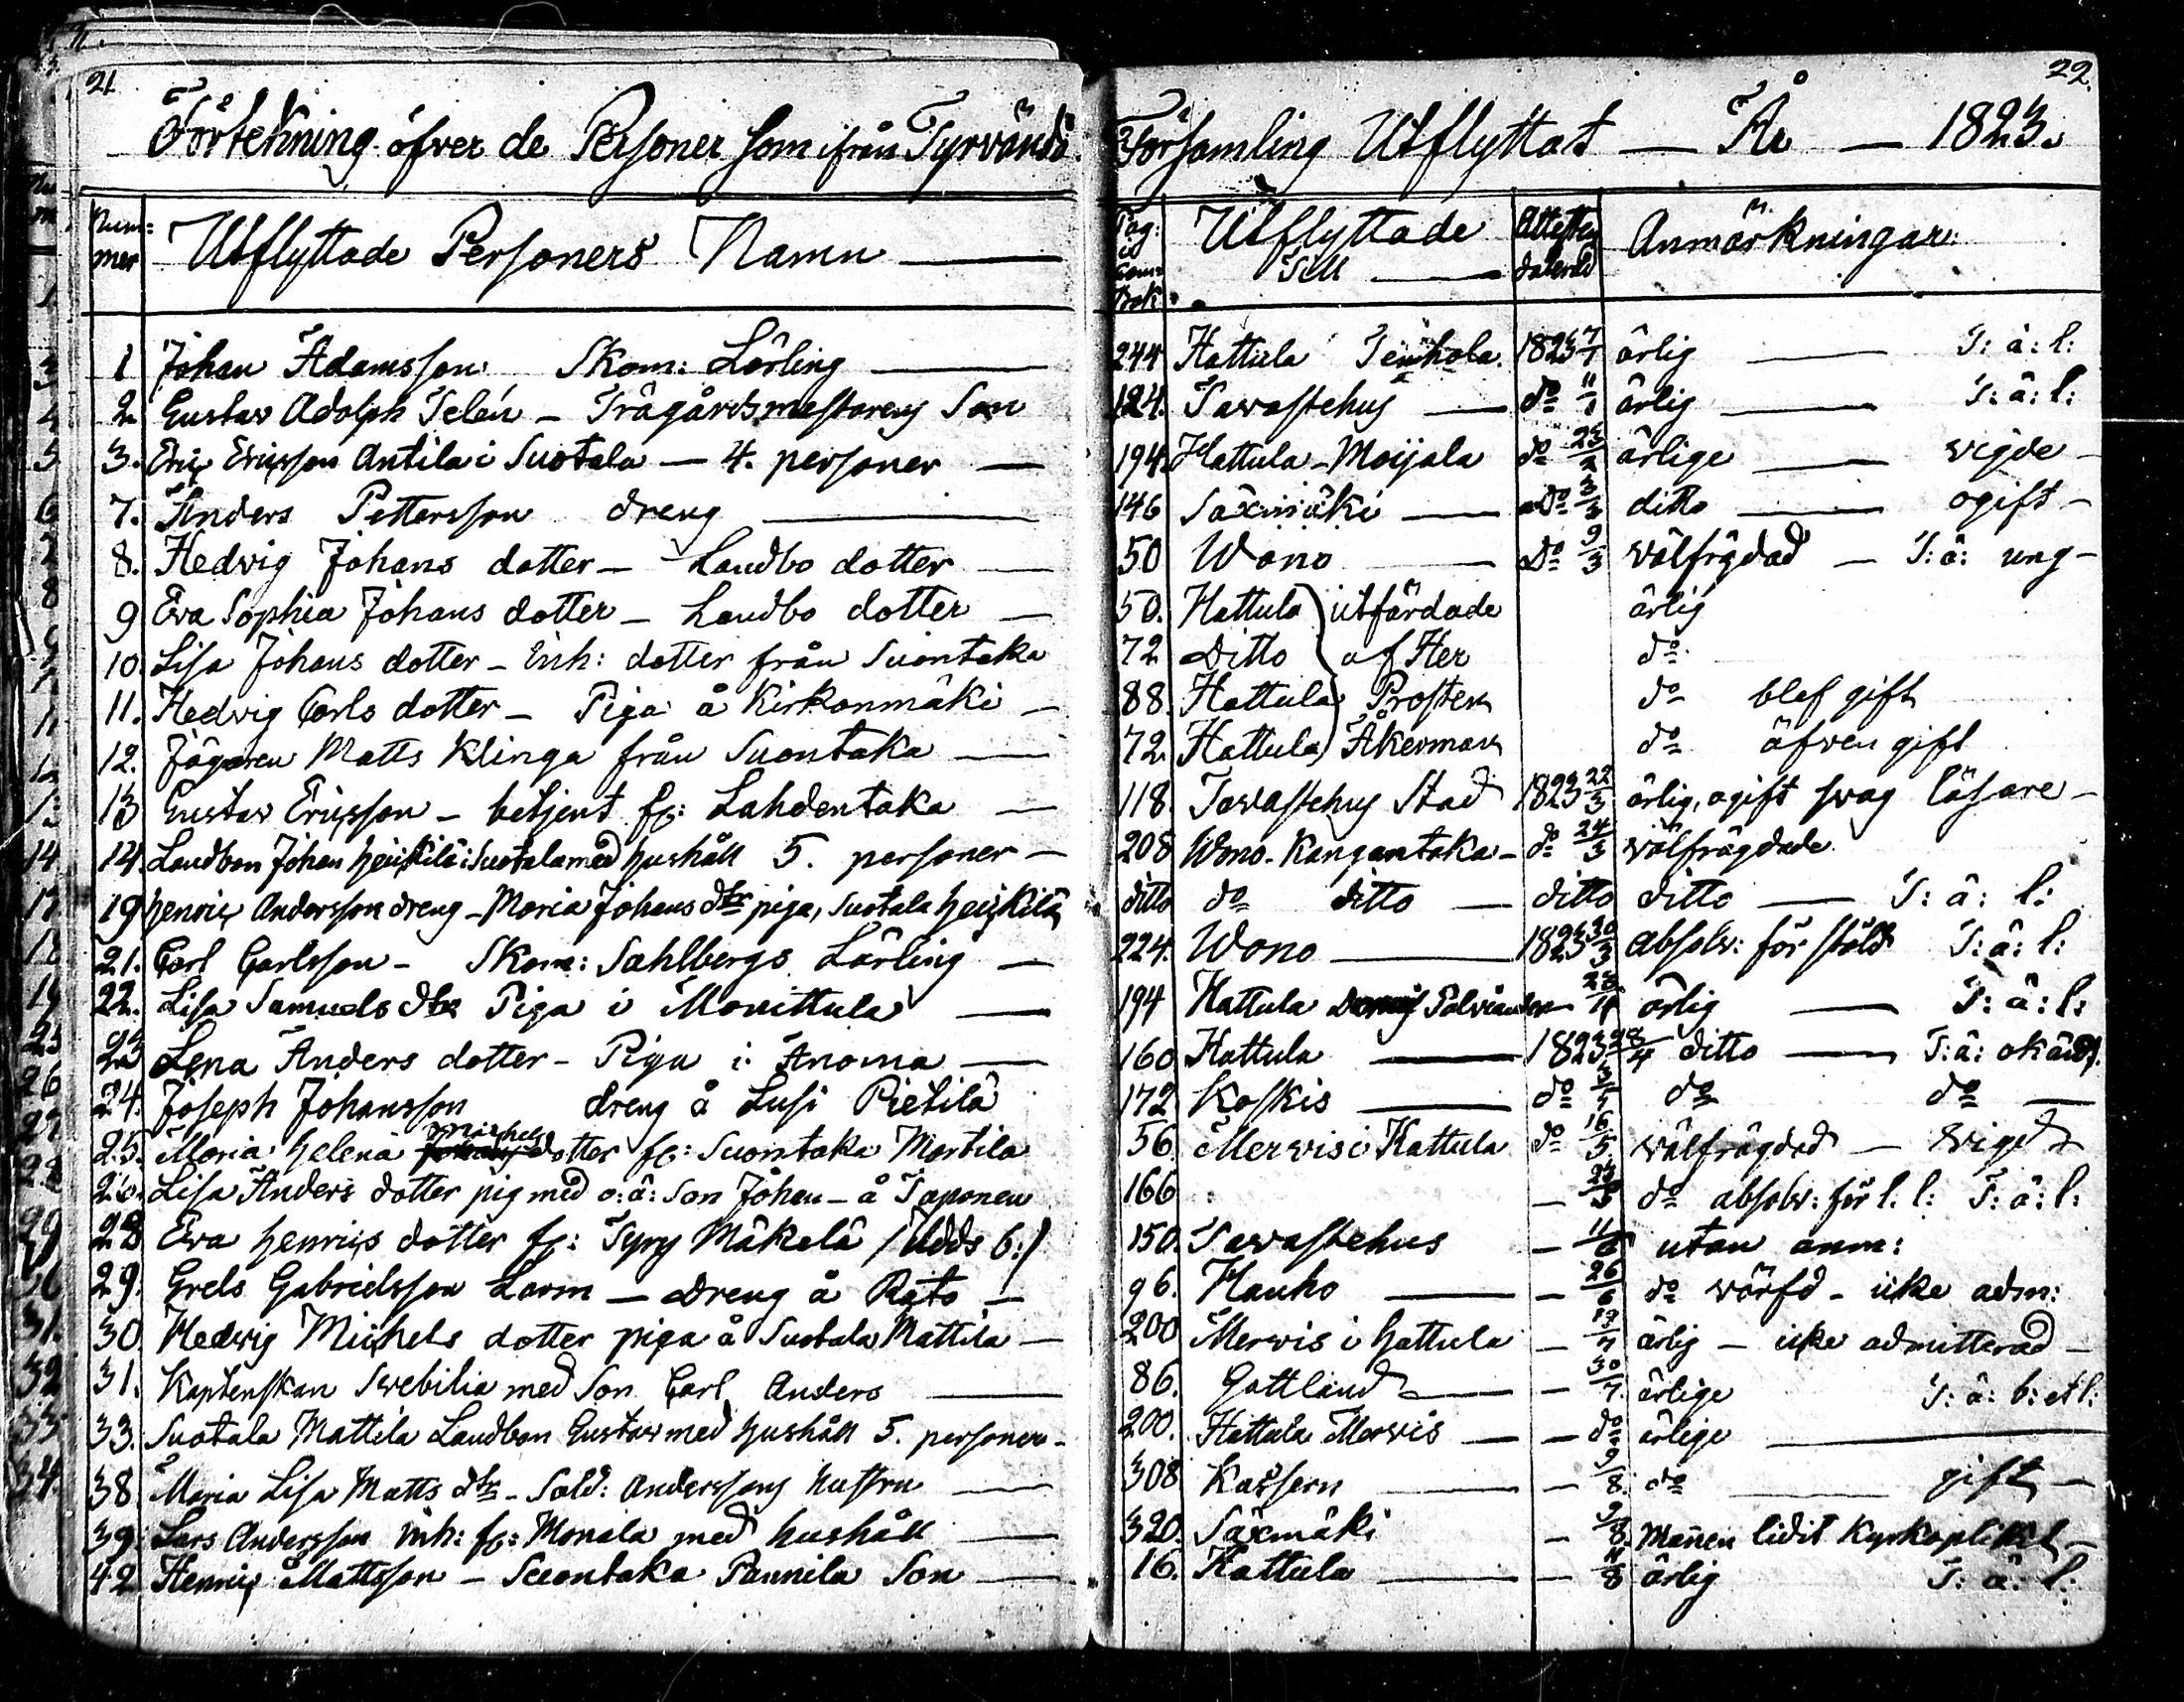 21.
22.
Förtekning öfver de Personer som ifrån Tyrvändö Församling Utflyttat — År — 1823.
Num=mer Utflyttade Personers Namn — Pag: i Com: Bok: Utflyttade Till — Attesten daterad Anmärkningar:
1 Johan Adamsson Skom: Lärling — 244 Hattula Tenhola 1823 7/1 ärlig — T: ä: l:
2. Gustav Adolph Telén – Trägårdsmästarens Son 124. Tavastehus — do 11/1 ärlig — T: ä: l:
3. Eric Ericsson Antila i Suotala — 4. personer — 194. Hattula – Moijala do 23/2 ärlige — vigde –
7. Anders Pettersson dreng — 146 Säxmäki — do 3/3 ditto — ogift –
8. Hedvig Johans dotter – Landbo dotter — 50 Wono — Do 9/3 välfrägdad — T: ä: ung –
9 Eva Sophia Johans dotter – Landbo dotter — 50. Hattula utfärdade ärlig
10. Lisa Johans dotter – Inh: dotter från Suontaka 72 Ditto af Her do
11. Hedvig Carls dotter – Piga å Kirkonmäki – 88. Hattula Prosten do blef gift
12. Jägaren Matts Klinga från Suontaka — 72. Hattula Åkerman do äfven gift
13 Gustav Ericsson – betjent fr: Lahdentaka — 118. Tavastehus Stad 1823 22/3 ärlig, ogift svag läsare –
14. Landbon Johan Heickilä i Suotala med hushåll 5. personer – 208 Wono – Kangantaka – do 24/3 välfrägdade
19 Henric Andersson dreng – Maria Johans dtr piga, Suotala Heickilä ditto do ditto — ditto ditto — T: ä: l:
21. Carl Carlsson – Skom: Sahlbergs Lärling — 224. Wono — 1823 30/3 absolv: för stöld T: ä: l:
22. Lisa Samuels dtr Piga i Monittula — 194 Hattula 28/4 ärlig — T: ä: l:
23 Lena Anders dotter – Piga i Anoma — 160 Hattula — 1823 28/4 ditto — T: ä: okänd.
24. Joseph Johansson dreng å Lusi Pietilä 172 Koskis — do do do —
25. Maria Helena Michels dotter fr: Suontaka Martila 56 Mervis i Hattula do 16/5 välfrägdad — vigd
26. Lisa Anders dotter pig med o: ä: Son Johan – å Taponen 166 — do absolv: för l. l: T: ä: l:
28 Eva Henrics dotter fr: Tyry Mäkelä /: Udds 6:/ 150. Tavastehus — 11/6 utan anm:
29. Grels Gabrielsson Larm — dreng å Rato — 96. Hauho — — 26/6 do värfd – icke adm:
30 Hedvig Michels dotter piga å Suotala Mattila — 200 Mervis i Hattula — ärlig — icke admitterad –
31. Kaptenskan Svebilia med Son Carl Anders — 86. Gottland — — 30/7. ärlige T: ä: b: et l:
33. Suotala Mattila Landbon Gustav med hushåll 5. personer – 200. Hattula Mervis — — do ärlige —
38. Maria Lisa Matts dtr – Sold: Anderssons hustru — 308 Kasern — — 9/8. do — gift –
39. Lars Andersson Inh: fr: Monala med hushåll — 320. Säxmäki — 9/8. Mannen lidit kyrkoplikt –
42 Henric Mattsson – Suontaka Pannila Son — 16. Hattula — — 11/8 ärlig T: ä: l: